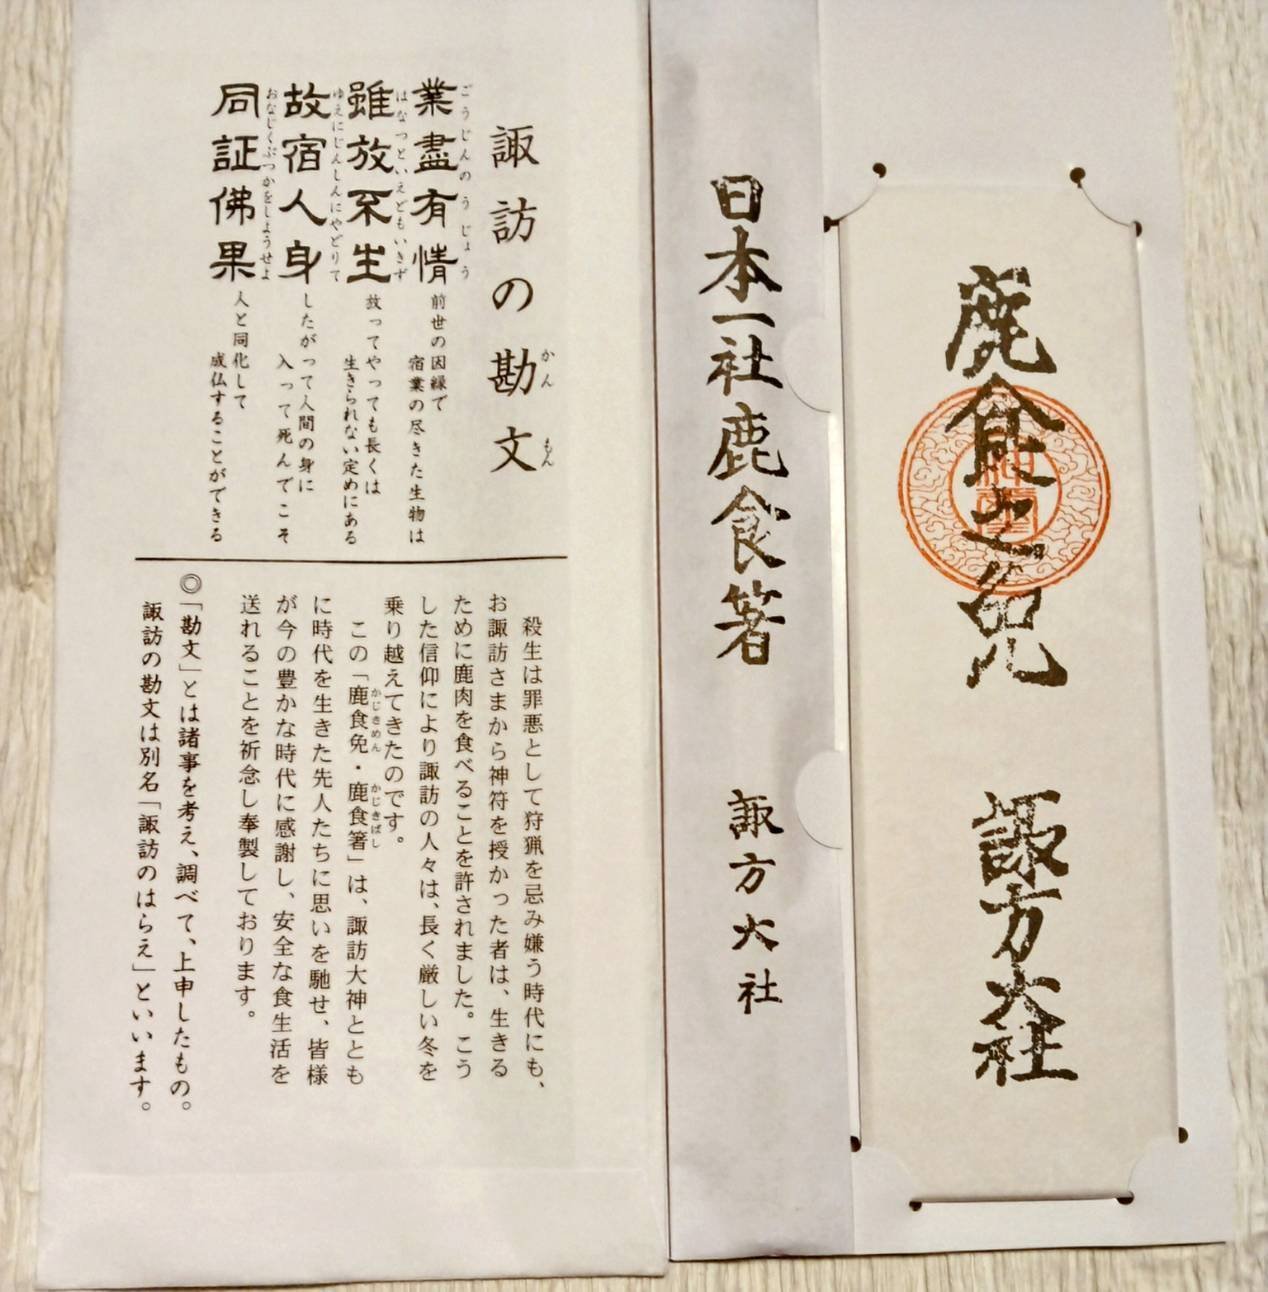 鹿食之免　諏方大社
日本一社鹿食箸　諏方大社
諏訪の勘文
かんもん
業盡有情
ごうじんのうじょう
前世の因縁で
宿業の尽きた生物は
雖放不生
はなつといえどもいきず
放ってやっても長くは
生きられない定めにある
故宿人身
ゆえにじんしんにやどりて
したがって人間の身に
入って死んでこそ
同証佛果
おなじくぶつかをしようせよ
人と同化して
成仏することができる
殺生は罪悪として狩猟を忌み嫌う時代にも、
お諏訪さまから神符を授かった者は、生きる
ために鹿肉を食べることを許されました。こう
した信仰により諏訪の人々は、長く厳しい冬を
乗り越えてきたのです。
この「鹿食免・鹿食箸」は、諏訪大神ととも
かじきめん　かじきばし
に時代を生きた先人たちに思いを馳せ、皆様
が今の豊かな時代に感謝し、安全な食生活を
送れることを祈念し奉製しております。
◎「勘文」とは諸事を考え、調べて、上申したもの。
諏訪の勘文は別名「諏訪のはらえ」といいます。